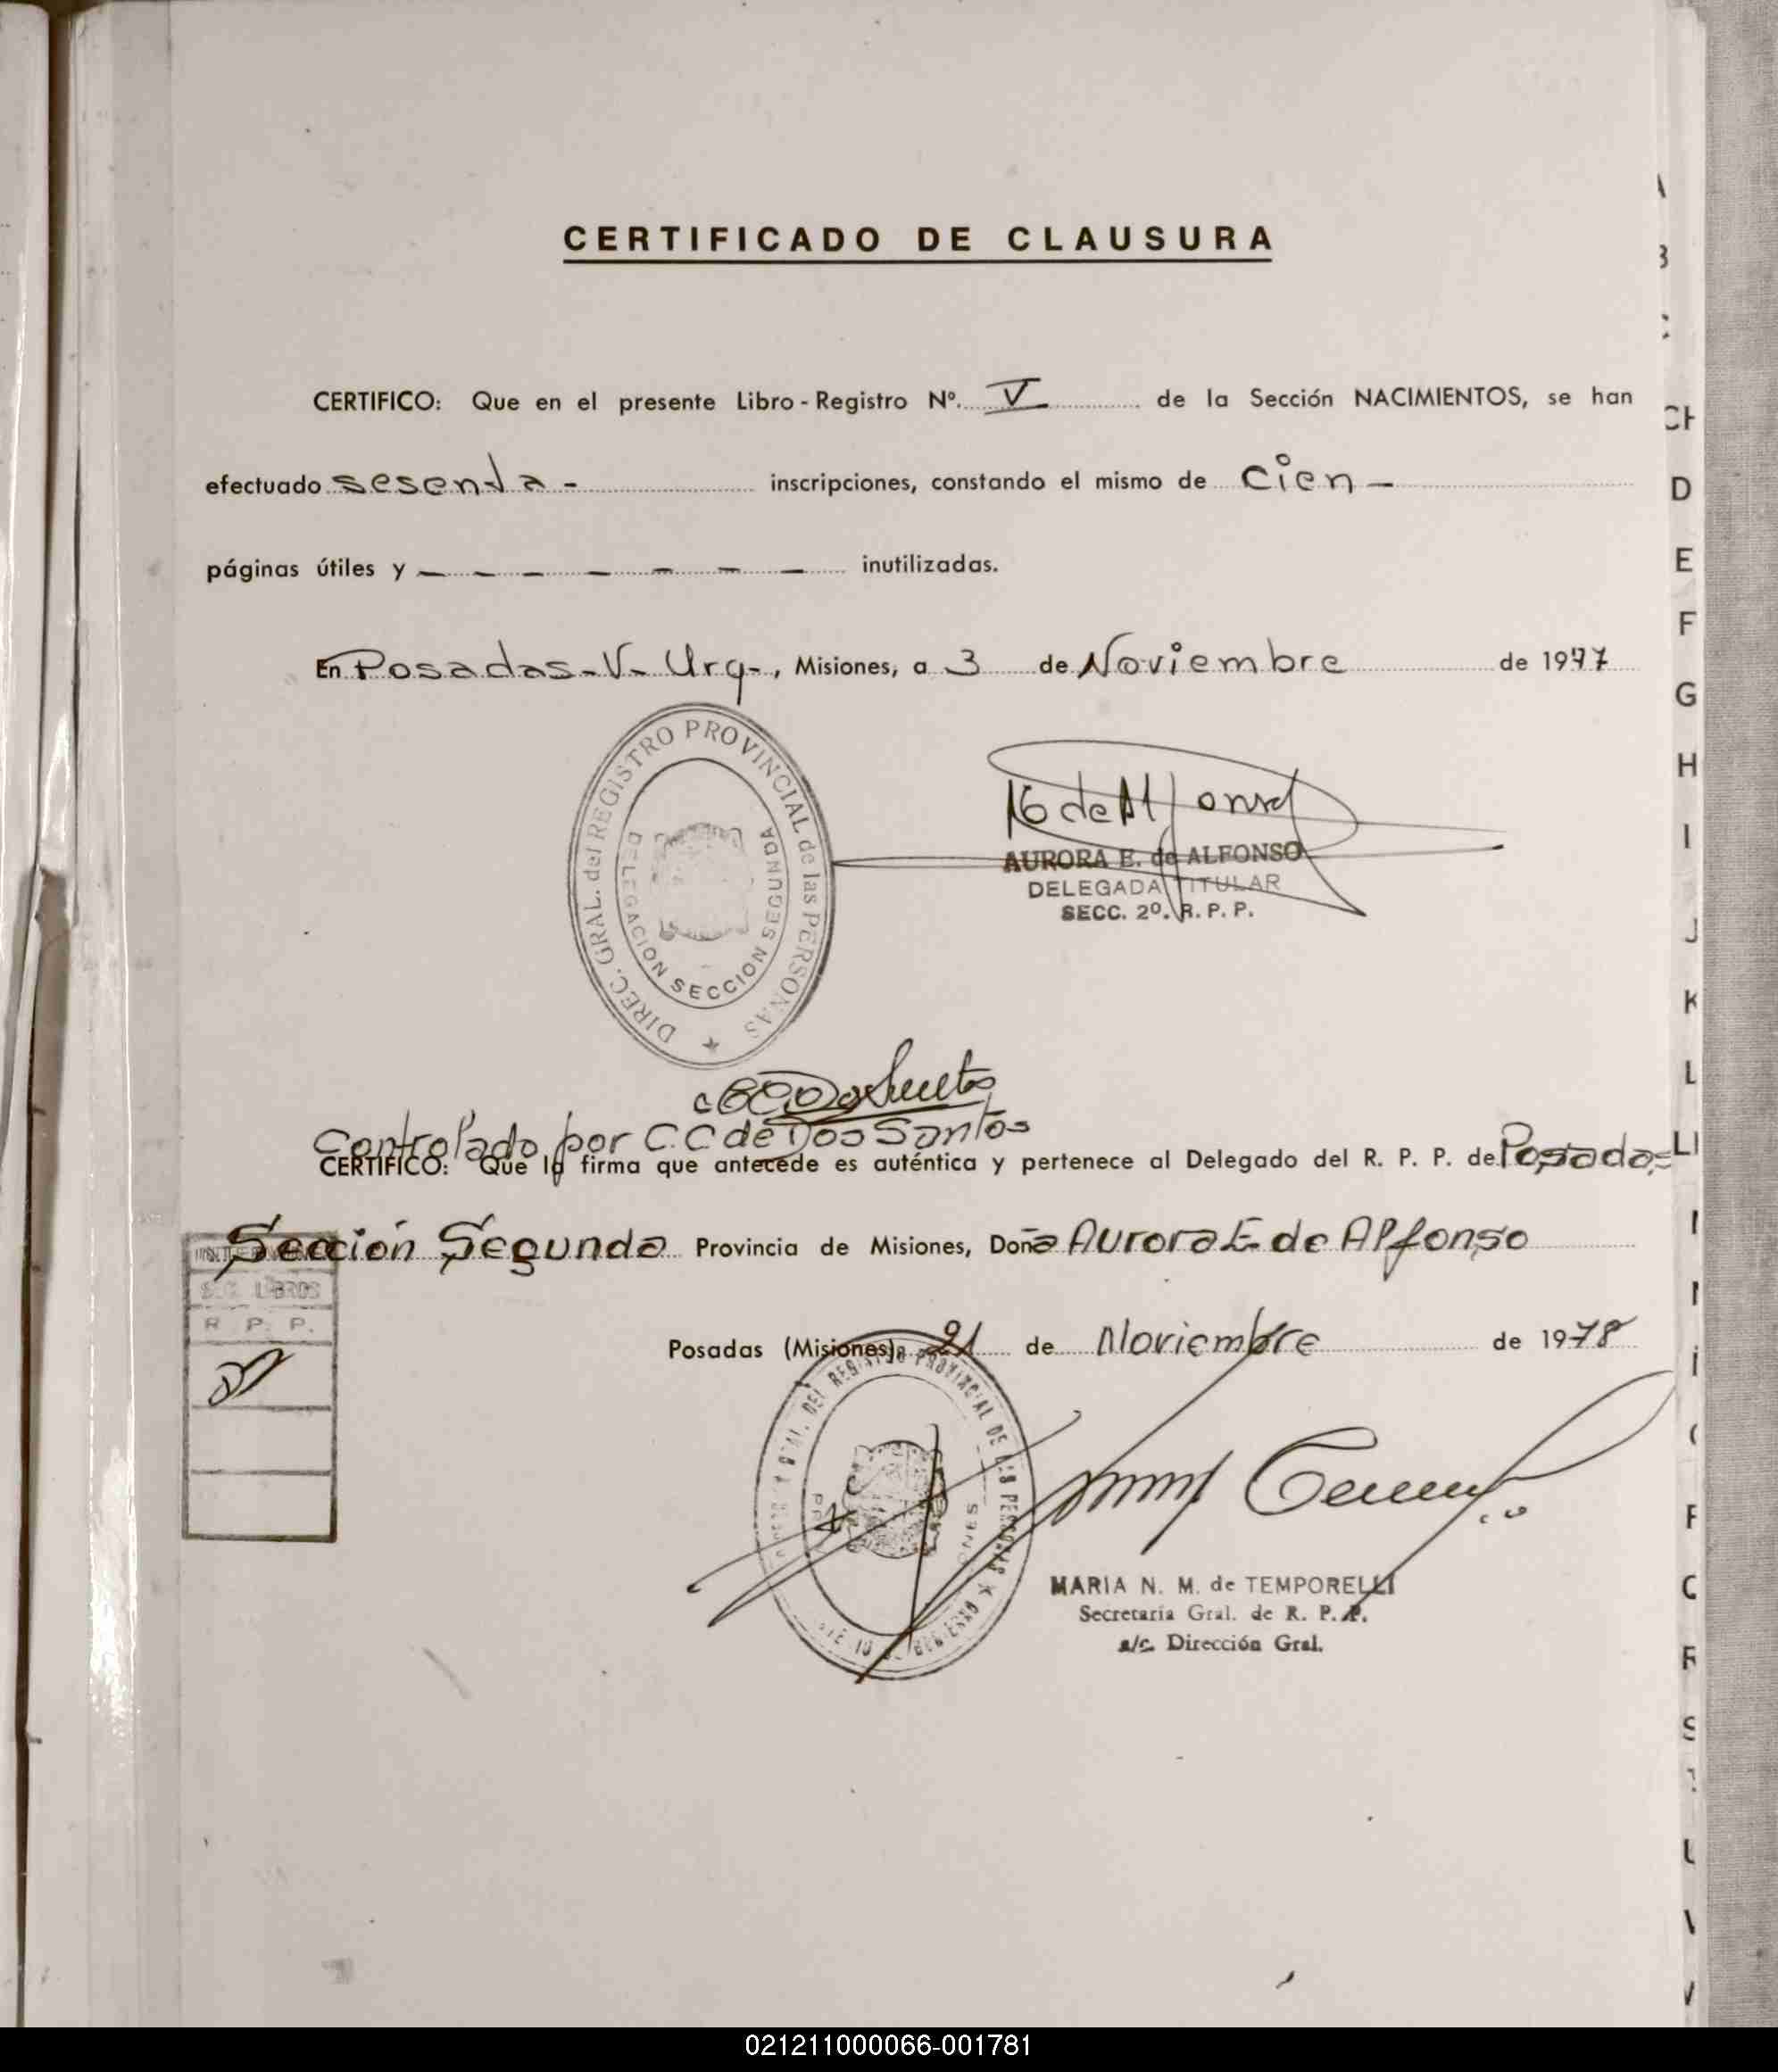 CERTIFICADO DE CLAUSURA
CERTIFICO: Que en el presente Libro-Registro Nº. V de la Sección NACIMIENTOS, se han
efectuado sesenta - inscripciones, constando el mismo de Cien -
páginas útiles y - - - - - - - inutilizadas.
En Posadas-V. Urq-, Misiones, a 3 de Noviembre de 1977
DIREC. GRAL. del REGISTRO PROVINCIAL de las PERSONAS
DELEGACION SECCION SEGUNDA
AURORA E. de ALFONSO
DELEGADA TITULAR
SECC. 2º. R. P. P.
Controlado por C.C de Dos Santos
CERTIFICO: Que la firma que antecede es auténtica y pertenece al Delegado del R. P. P. de Posadas
Sección Segunda Provincia de Misiones, Doña Aurora E de Alfonso
SEC. LIBROS
R. P. P.
Posadas (Misiones), 21 de Noviembre de 1978
DEL REGISTRO PROVINCIAL DE LAS PERSONAS
MARIA N. M. de TEMPORELLI
Secretaria Gral. de R. P. P.
a/c. Dirección Gral.
A
B
C
CH
D
E
F
G
H
I
J
K
L
LL
R
S
U
V
021211000066-001781